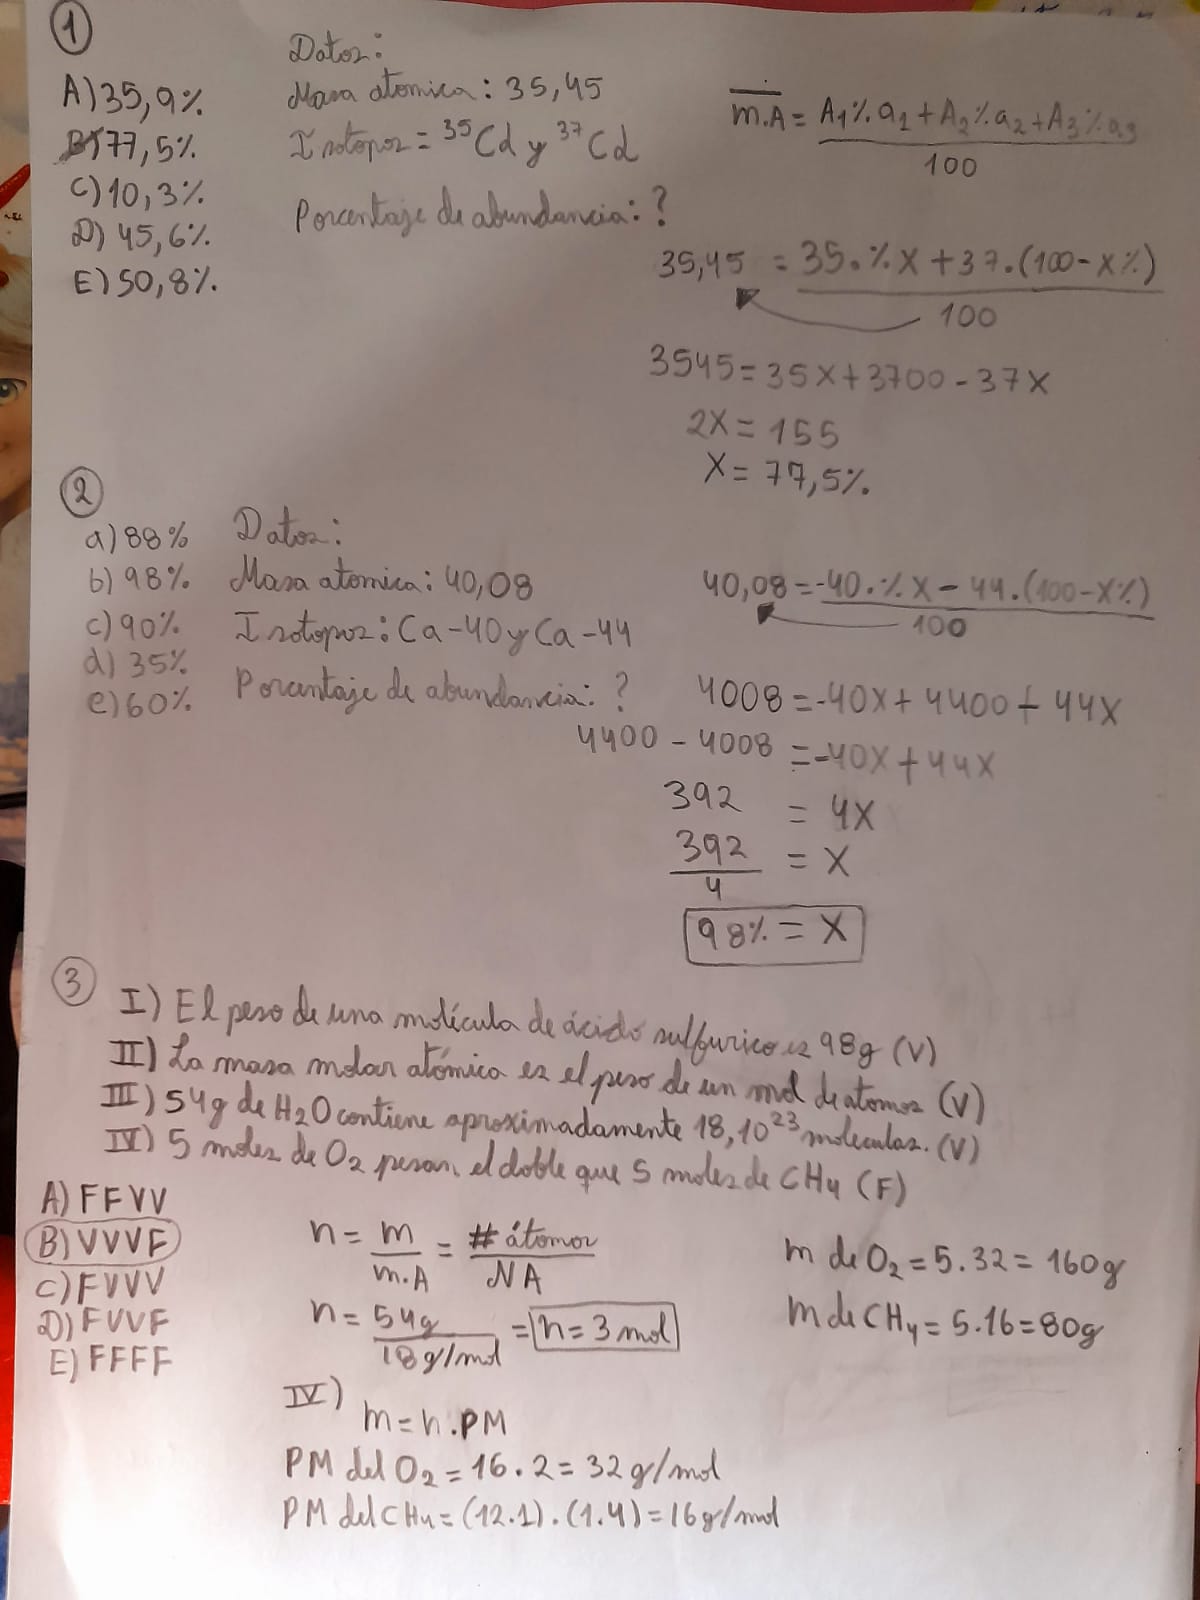 1
A) 35,9%
B) 77,5%
C) 10,3%
D) 45,6%
E) 50,8%
Datos:
Masa atomica: 35,45
Isotopos = ³⁵Cd y ³⁷Cd
Porcentaje de abundancia: ?
m.A = A₁% a₁ + A₂% a₂ + A₃% a₃
100
35,45 = 35.%X + 37.(100-X%)
100
3545 = 35X + 3700 - 37X
2X = 155
X = 77,5%
2
a) 88%
b) 98%
c) 90%
d) 35%
e) 60%
Datos:
Masa atomica: 40,08
Isotopos: Ca-40 y Ca-44
Porcentaje de abundancia: ?
40,08 = -40.%X - 44.(100-X%)
100
4008 = -40X + 4400 + 44X
4400 - 4008 = -40X + 44X
392 = 4X
392 = X
4
98% = X
3
I) El peso de una molécula de ácido sulfurico es 98g (V)
II) La masa molar atómica es el peso de un mol de atomos (V)
III) 54g de H₂O contiene aproximadamente 18,10²³ moleculas. (V)
IV) 5 moles de O₂ pesan el doble que 5 moles de CH₄ (F)
A) FFVV
B) VVVF
C) FVVV
D) FVVF
E) FFFF
n = m = # átomos
m.A NA
n = 54g = n = 3 mol
18 g/mol
m de O₂ = 5.32 = 160g
m de CH₄ = 5.16 = 80g
IV)
m = n.PM
PM del O₂ = 16.2 = 32 g/mol
PM del CH₄ = (12.1).(1.4) = 16 g/mol